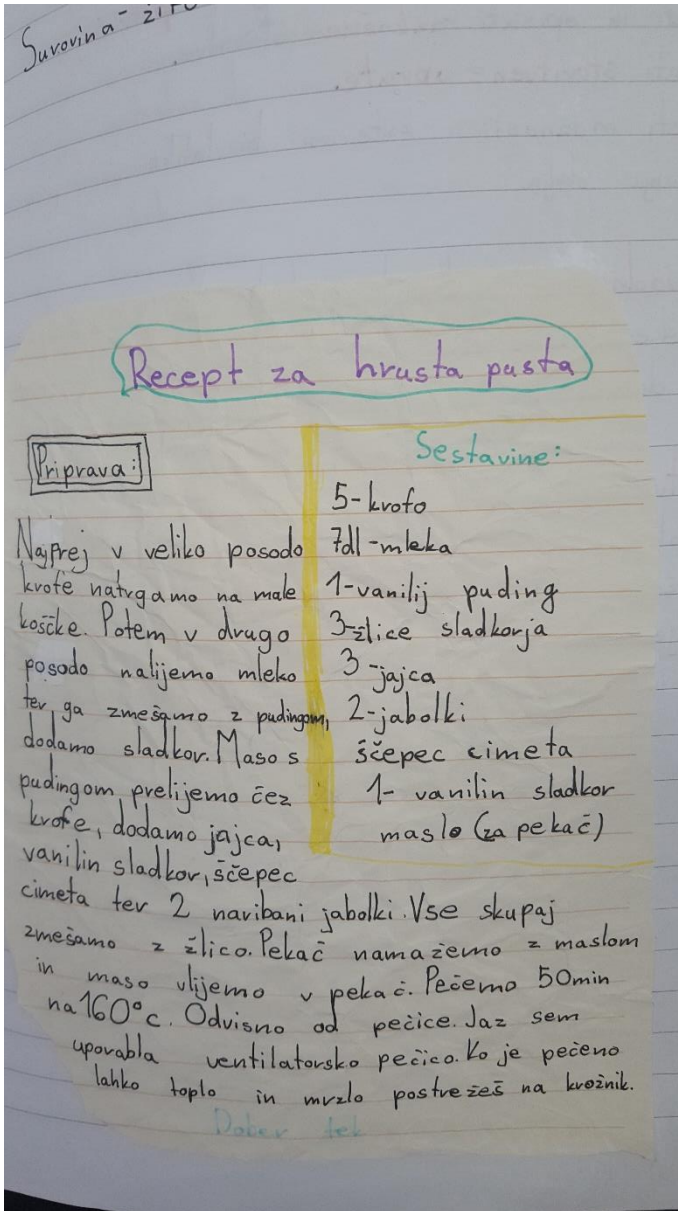 Surovina -
Recept za hrusta pusta
Priprava:
Najprej v veliko posodo
krofe natrgamo na male
koščke. Potem v drugo
posodo nalijemo mleko
ter ga zmešamo z pudingom,
dodamo sladkor. Maso s
pudingom prelijemo čez
krofe, dodamo jajca,
vanilin sladkor, ščepec
cimeta ter 2 naribani jabolki. Vse skupaj
zmešamo z žlico. Pekač namažemo z maslom
in maso vlijemo v pekač. Pečemo 50min
na 160°c. Odvisno od pečice. Jaz sem
uporabla ventilatorsko pečico. Ko je pečeno
lahko toplo in mrzlo postrežeš na krožnik.
Dober tek
Sestavine:
5-krofo
7dl-mleka
1-vanilij puding
3-žlice sladkorja
3-jajca
2-jabolki
ščepec cimeta
1- vanilin sladkor
maslo (za pekač)